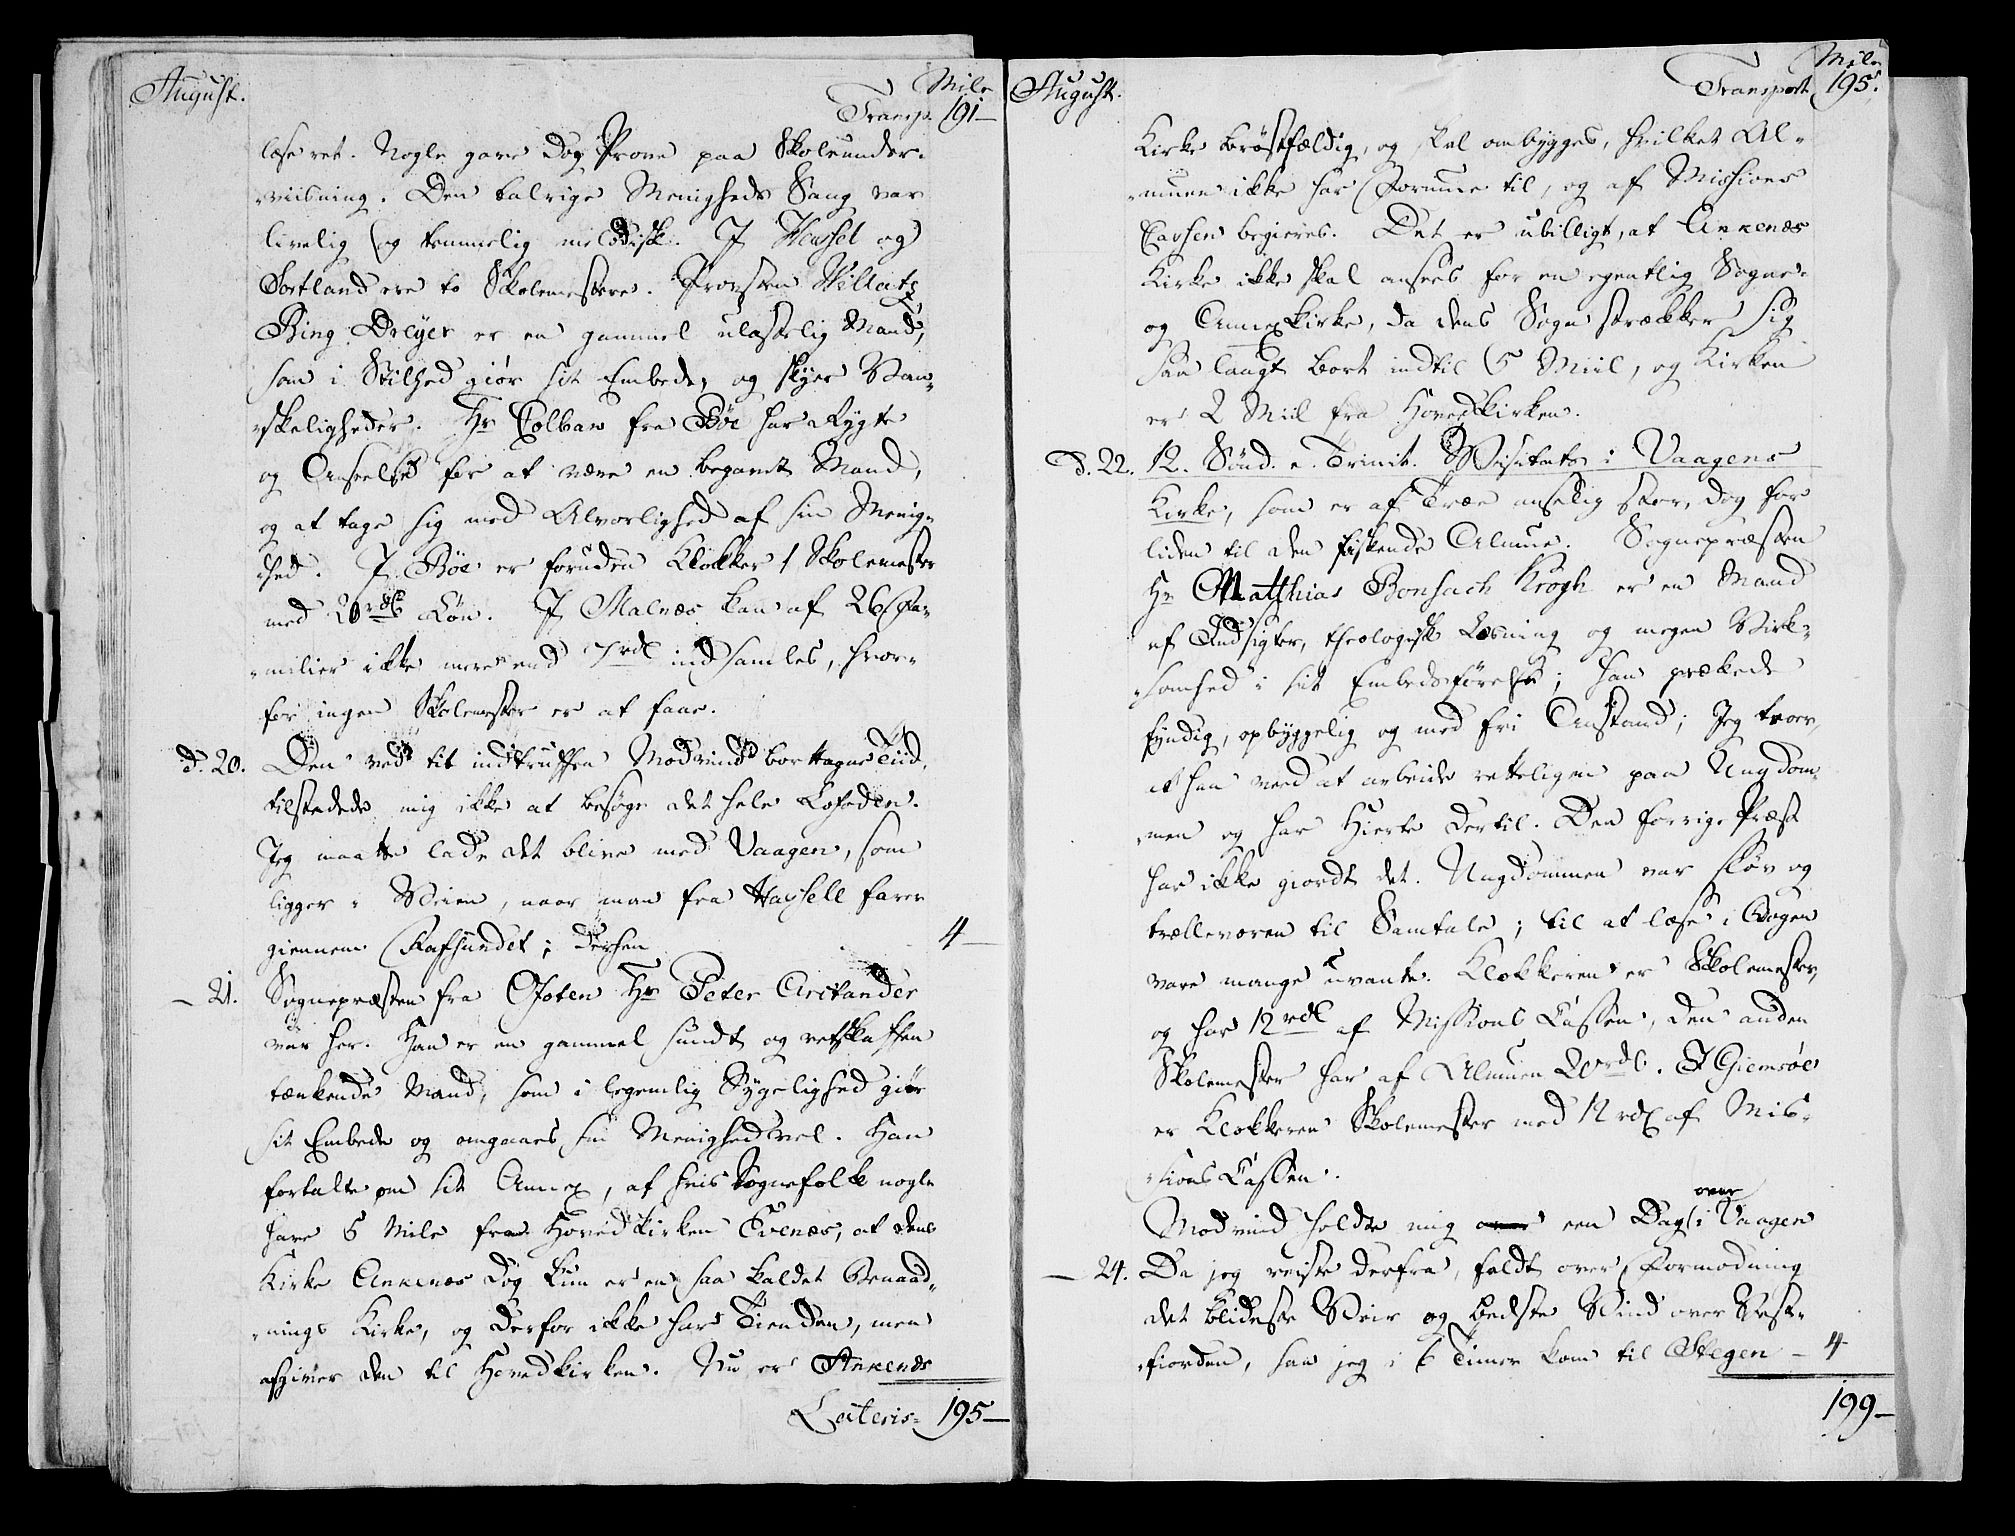 August.
Mile
Transp. 191 —
læse ret. Nogle gave dog Prøve paa Skoleunder-
-viisning. Den talrige Menigheds Sang var
livelig og temmelig melodisk. I Hassel og
Sortland ere to Skolemestere. Provsten Willats
Bing Dreyer er en gammel ulastelig Mand,
som i Stilhed giør sit Embede, og skyer Van-
-skeligheder. Hr Colban fra Bøe har Rygte
og Anseelse for at være en begavet Mand,
og at tage sig med Alvorlighed af sin Menig-
-hed. I Bøe er foruden Klokker 1 Skolemester
med 20 rdl Løn. I Malnæs kan af 26 Fa-
-milier ikke mere end 7 rdl indsamles, hvor-
for ingen Skolemester er at faae.
d. 20. Den ved tit indtruffen Modvind borttagne Tiid,
tilstedede mig ikke at besøge det hele Lofoden.
Jeg maatte lade det blive med Vaagen, som
ligger i Veien, naar man fra Haysell farer
giennem Rafsundet; dersen 4 —
— 21. Sognepræsten fra Ofoten Hr Peter Arctander
var her. Han er en gammel sundt og retskaffen
tænkende Mand, som i legemlig Sygelighed giør
sit Embede og omgaaes sin Menighed vel. Han
fortalte om sit Annex, af hvis Sognefolk nogle
have 5 Mile fra Hovedkirken Evenæs, at dens
Kirke Ankenæs dog kun er en saa kaldet Benaad-
-nings Kirke, og derfor ikke har Tienden, men
afgiver den til Hovedkirken. Nu er Ankenæs
Lateris 195 —
August.
Mile
Transport 195.
Kirke brøstfældig, og skal ombygges, hvilket Al-
-muen ikke har Formue til, og af Missions
Cassen begieres. Det er ubilligt, at Ankenæs
Kirke ikke skal ansees for en egentlig Sogne-
og Annexkirke, da dens Sogn strækker sig
saa langt bort indtil 5 Miil, og Kirken
er 2 Miil fra Hovedkirken.
d. 22. 12. Sønd. e. Trinit. Visitats i Vaagens
Kirke, som er af Træe anselig stor, dog for
liden til den fiskende Almue. Sognepræsten
Hr Matthias Bonsach Krogh er en Mand
af Indsigter, theologisk Læsning og megen Virk-
-somhed i sit Embedsførelse; han prækede
fyndig, opbyggelig og med fri Anstand; Jeg troer,
at han veed at arbeide retteligen paa Ungdom-
-men og har Hierte dertil. Den forrige Præst
har ikke giordt det. Ungdommen var sløv og
trællevoren til Samtale; til at læse i Bogen
vare mange uvante. Klokkeren er Skolemester,
og har 12 rdl af Missions Cassen, den anden
Skolemester har af Almuen 20 rdl. I Giemsøe
er Klokkeren Skolemester med 12 rdl af Mis-
-sions Cassen.
Modvind holdte mig een Dag over i Vaagen
— 24. Da jeg reiste derfra, faldt over Formodning
det blideste Veir og bedste Vind over Vest-
-fiorden, saa jeg i 6 Timer kom til Stegen — 4
199 —